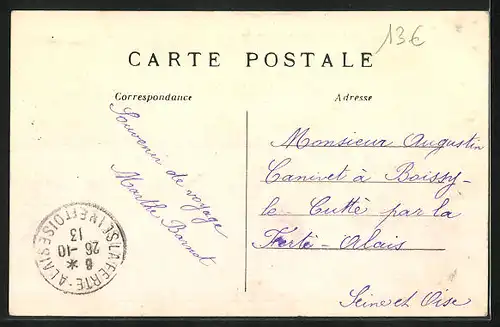 13€
CARTE POSTALE
Correspondance
Adresse
Souvenir de voyage
Marthe Barnet
Monsieur Augustin
Canivet à Boissy-
le-Cutté par la
Ferté-Alais
Seine et Oise
LA FERTE-ALAIS
SEINE ET OISE
6 *
26-10
13